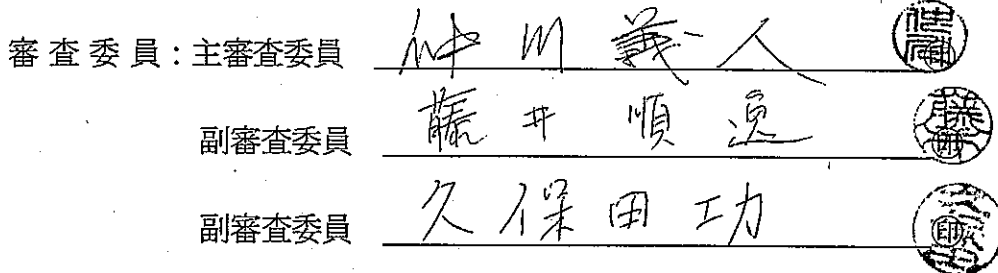 審査委員：主審査委員 仲川義人
副審査委員 藤井順逸
副審査委員 久保田功